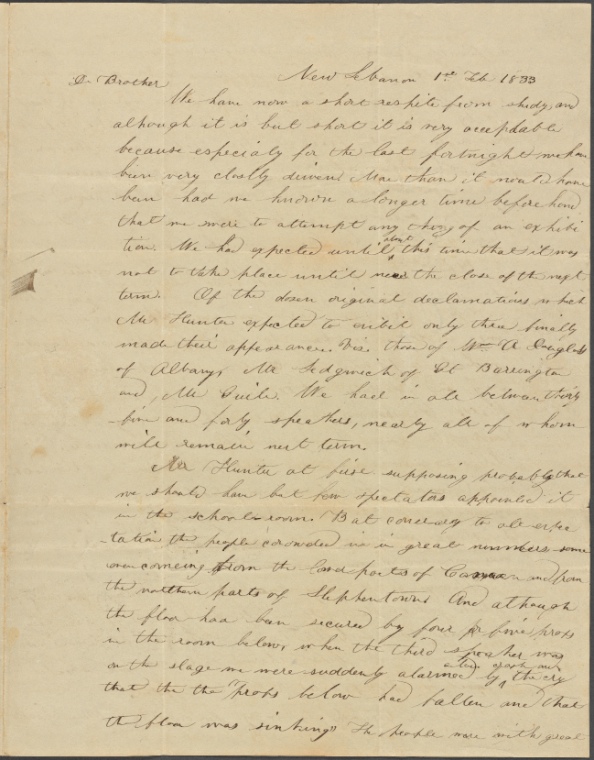 New Lebanon 1st Feb 1833
Dr Brother
We have now a short respite from study, and
although it is but short it is very acceptable
because especialy for the last fortnight we have
been very closly driven More than it would have
been had we known a longer time beforehand
that we were to attempt any thing of an exhibi
tion. We had expected until about this time that it was
not to take place until near the close of the next
term. Of the dozen original declamations which
Mr Hunter expected to exibit only three finally
made their appearance. Viz. those of Wm A Douglass
of Albany, Mr Sedgwick of Gt Barrington
and Mr Guile. We had in all between thirty
five and forty speakers, nearly all of whom
will remain next term.
Mr Hunter at first supposing probably that
we should have but few spectators appointed it
in the school-room. But contrary to all expec
tation the people crowded in in great numbers some
even comeing from the parts of Canaan and from
the northern parts of Stephentown And although
the floor had been secured by four or five props
in the room below, when the third speaker was
on the stage we were suddenly alarmed by the cry
that the the props below had fallen and that
the floor was sinking. The people were with great